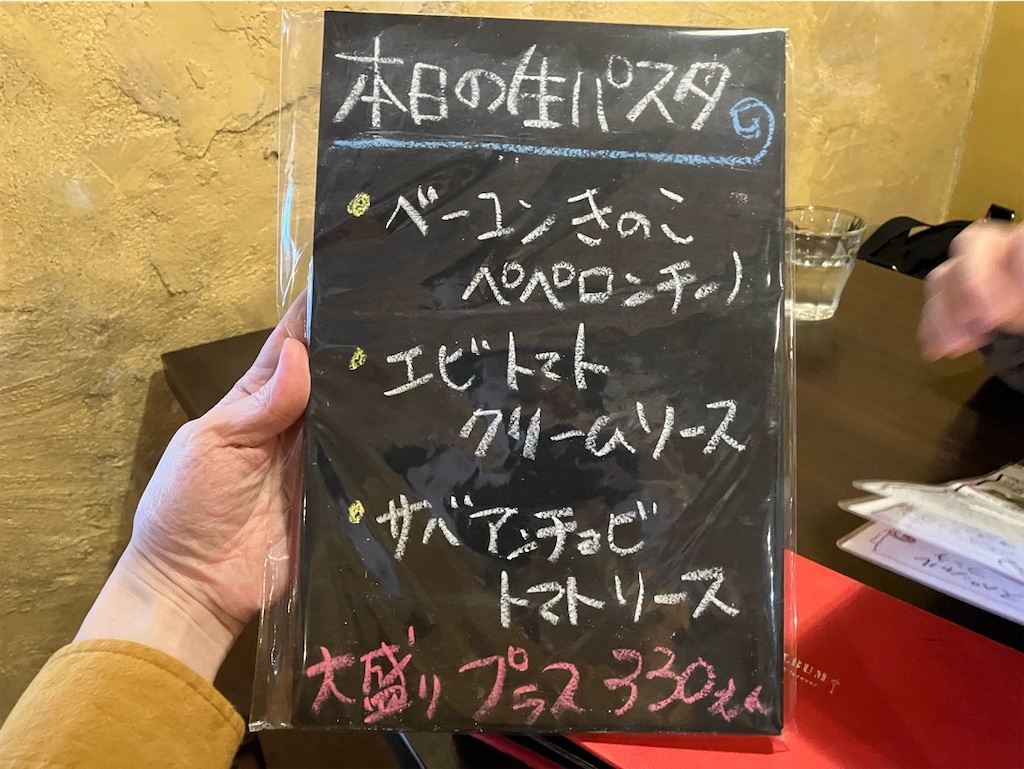 本日の生パスタ
ベーコンきのこ
ペペロンチーノ
エビトマト
クリームソース
サバアンチョビ
トマトソース
大盛りプラス330えん